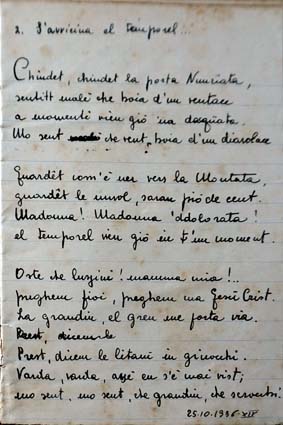 2. S'avvicina el temporel...
Chindet, chindet la porta Nunziata,
sentitt malè che boia d'un ventace
a momenti vien giò 'na daquata.
Mo sent che vent, boia d'un diavolace
Guardèt com'è ner vers la Montata,
guardèt le nuvol, saran piò de cent.
Madonna! Madonna 'ddolorata!
el temporel vien giò in t'un moment.
Oste che luzzini! mamma mia!..
preghem fioi, preghem ma Gesù Crist.
La grandin, el gren me porta via.
Prest, dicem le
Prest, dicem le litani in ginocchi.
Varda, varda, assè en s'è mai vist;
mo sent, mo sent, che grandin, che
25.10.1936-XIV